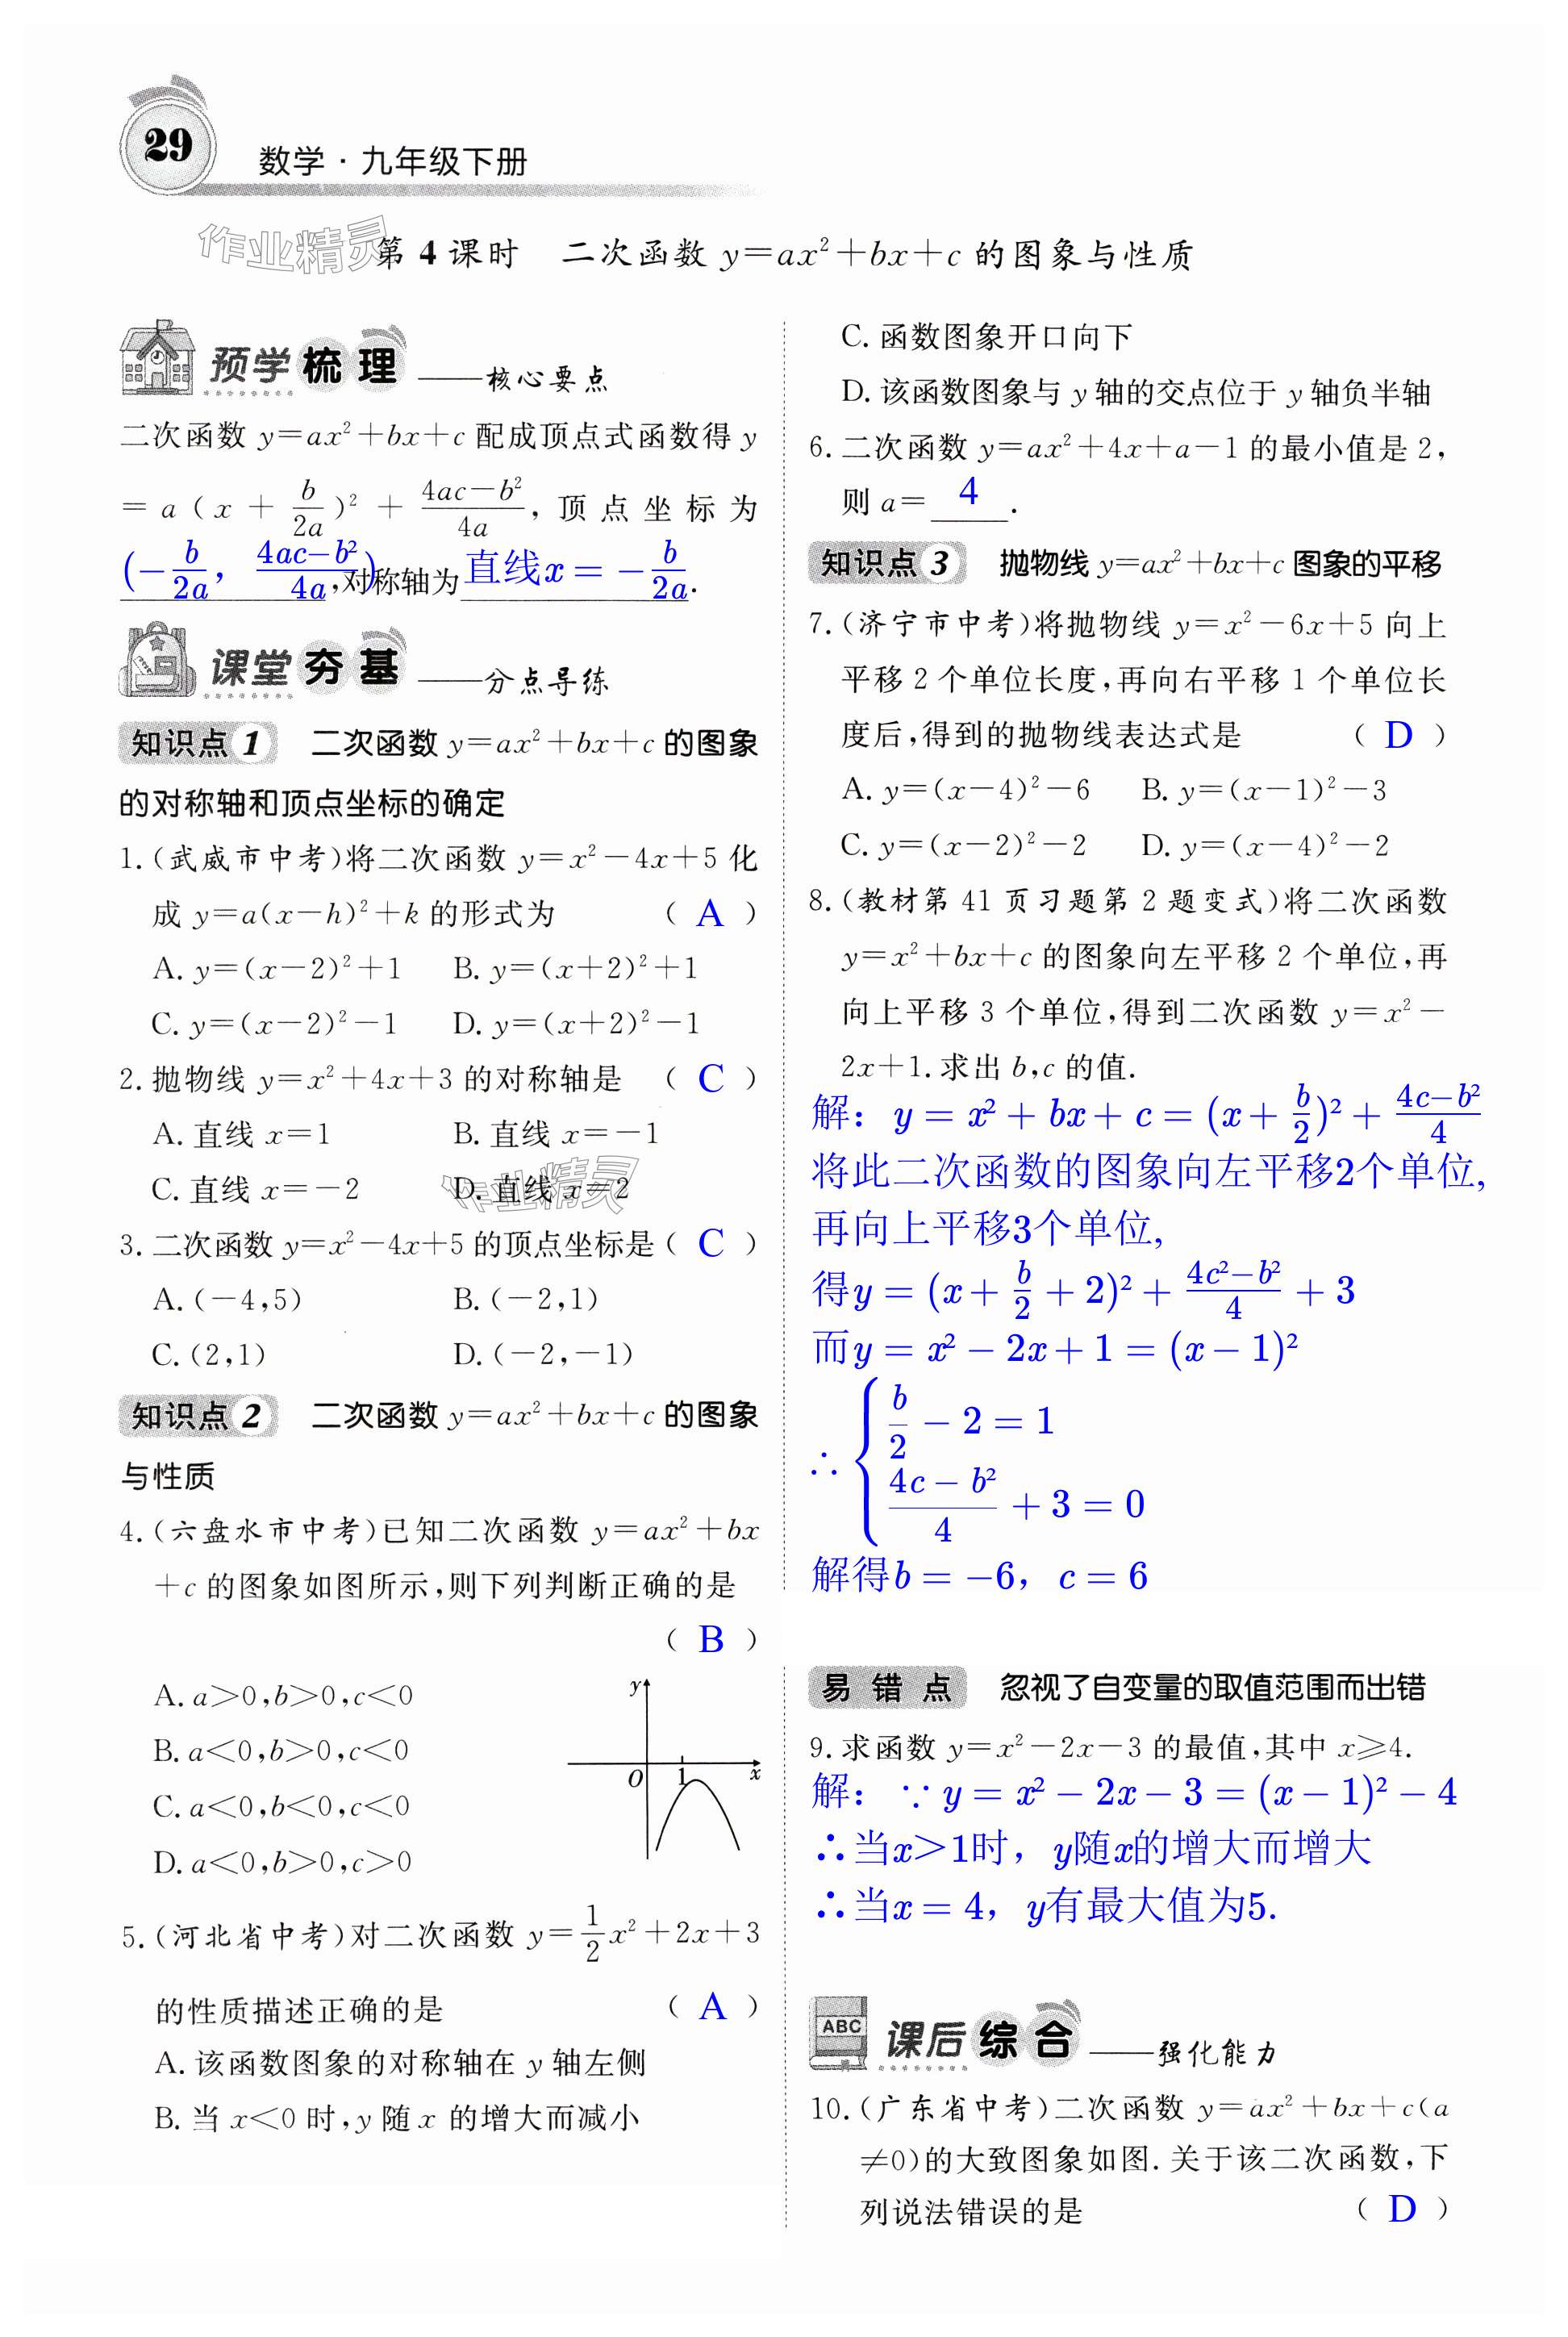 29
数学·九年级下册
作业精灵
第 4 课时　二次函数 y=ax²+bx+c 的图象与性质
预学梳理——核心要点
二次函数 y=ax²+bx+c 配成顶点式函数得 y
=a(x+b/2a)²+(4ac-b²)/4a,顶点坐标为
(-b/2a, (4ac-b²)/4a),对称轴为直线x=-b/2a.
课堂夯基——分点导练
知识点1　二次函数 y=ax²+bx+c 的图象
的对称轴和顶点坐标的确定
1.(武威市中考)将二次函数 y=x²-4x+5 化
成 y=a(x-h)²+k 的形式为 ( A )
A. y=(x-2)²+1　B. y=(x+2)²+1
C. y=(x-2)²-1　D. y=(x+2)²-1
2. 抛物线 y=x²+4x+3 的对称轴是 ( C )
A. 直线 x=1　B. 直线 x=-1
C. 直线 x=-2　D. 直线 x=2
作业精灵
3. 二次函数 y=x²-4x+5 的顶点坐标是( C )
A. (-4,5)　B. (-2,1)
C. (2,1)　D. (-2,-1)
知识点2　二次函数 y=ax²+bx+c 的图象
与性质
4.(六盘水市中考)已知二次函数 y=ax²+bx
+c 的图象如图所示,则下列判断正确的是
( B )
A. a>0,b>0,c<0
B. a<0,b>0,c<0
C. a<0,b<0,c<0
D. a<0,b>0,c>0
y
O 1 x
5.(河北省中考)对二次函数 y=1/2x²+2x+3
的性质描述正确的是 ( A )
A. 该函数图象的对称轴在 y 轴左侧
B. 当 x<0 时,y 随 x 的增大而减小
C. 函数图象开口向下
D. 该函数图象与 y 轴的交点位于 y 轴负半轴
6. 二次函数 y=ax²+4x+a-1 的最小值是 2,
则 a=4.
知识点3　抛物线 y=ax²+bx+c 图象的平移
7.(济宁市中考)将抛物线 y=x²-6x+5 向上
平移 2 个单位长度,再向右平移 1 个单位长
度后,得到的抛物线表达式是 ( D )
A. y=(x-4)²-6　B. y=(x-1)²-3
C. y=(x-2)²-2　D. y=(x-4)²-2
8.(教材第 41 页习题第 2 题变式)将二次函数
y=x²+bx+c 的图象向左平移 2 个单位,再
向上平移 3 个单位,得到二次函数 y=x²-
2x+1. 求出 b,c 的值.
解: y=x²+bx+c=(x+b/2)²+(4c-b²)/4
将此二次函数的图象向左平移2个单位,
再向上平移3个单位,
得y=(x+b/2+2)²+(4c²-b²)/4+3
而y=x²-2x+1=(x-1)²
∴{b/2-2=1
(4c-b²)/4+3=0
解得b=-6, c=6
易错点　忽视了自变量的取值范围而出错
9. 求函数 y=x²-2x-3 的最值,其中 x≥4.
解: ∵y=x²-2x-3=(x-1)²-4
∴当x>1时, y随x的增大而增大
∴当x=4, y有最大值为5.
ABC
课后综合——强化能力
10.(广东省中考)二次函数 y=ax²+bx+c(a
≠0)的大致图象如图. 关于该二次函数,下
列说法错误的是 ( D )